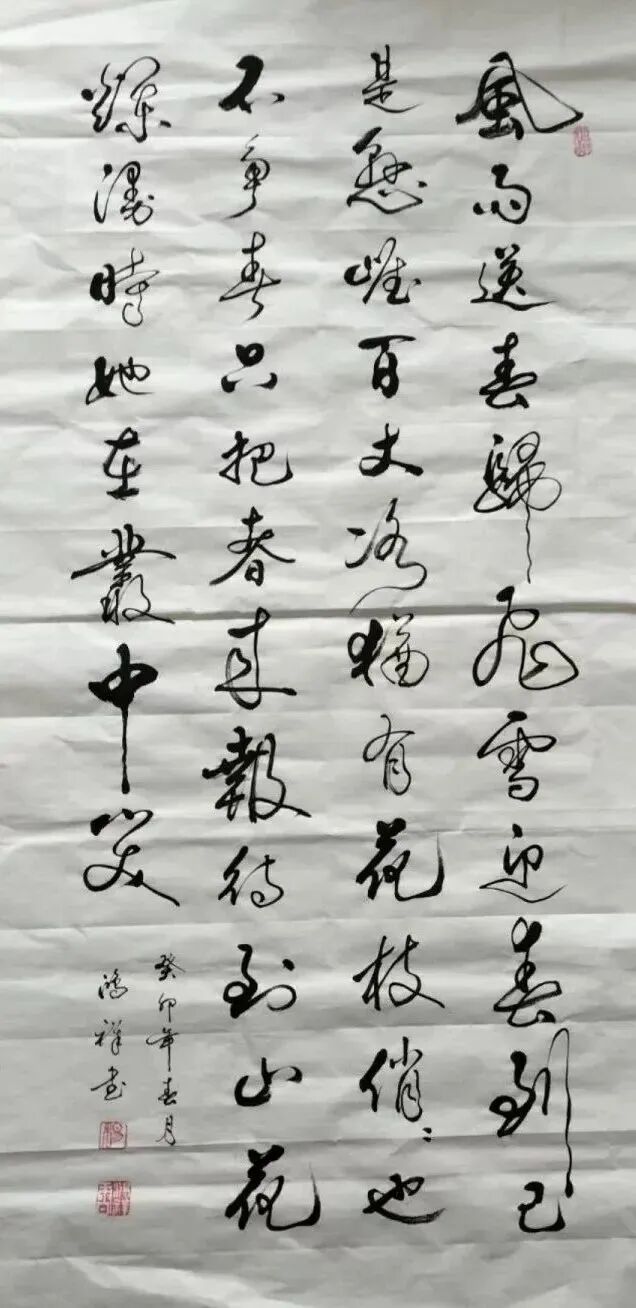 風雨送春歸飛雪迎春到已
是懸崖百丈冰猶有花枝俏〻也
不爭春只把春來報待到山花
爛漫時她在叢中笑
癸卯年春月
鴻祥書